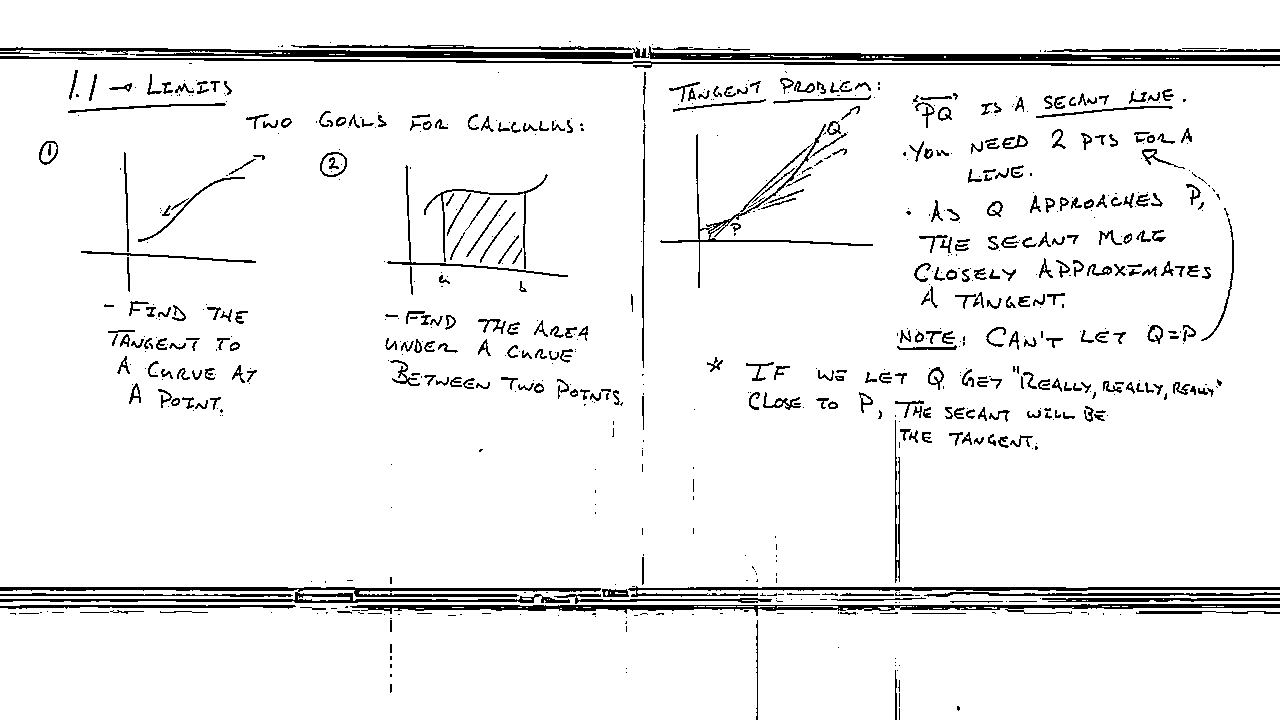 1.1 → LIMITS
TWO GOALS FOR CALCULUS:
①
②
a
b
- FIND THE
TANGENT TO
A CURVE AT
A POINT.
- FIND THE AREA
UNDER A CURVE
BETWEEN TWO POINTS.
TANGENT PROBLEM:
Q
P
PQ IS A SECANT LINE.
· YOU NEED 2 PTS FOR A
LINE.
· AS Q APPROACHES P,
THE SECANT MORE
CLOSELY APPROXIMATES
A TANGENT.
NOTE: CAN'T LET Q=P
* IF WE LET Q GET "REALLY, REALLY, REALLY"
CLOSE TO P, THE SECANT WILL BE
THE TANGENT.